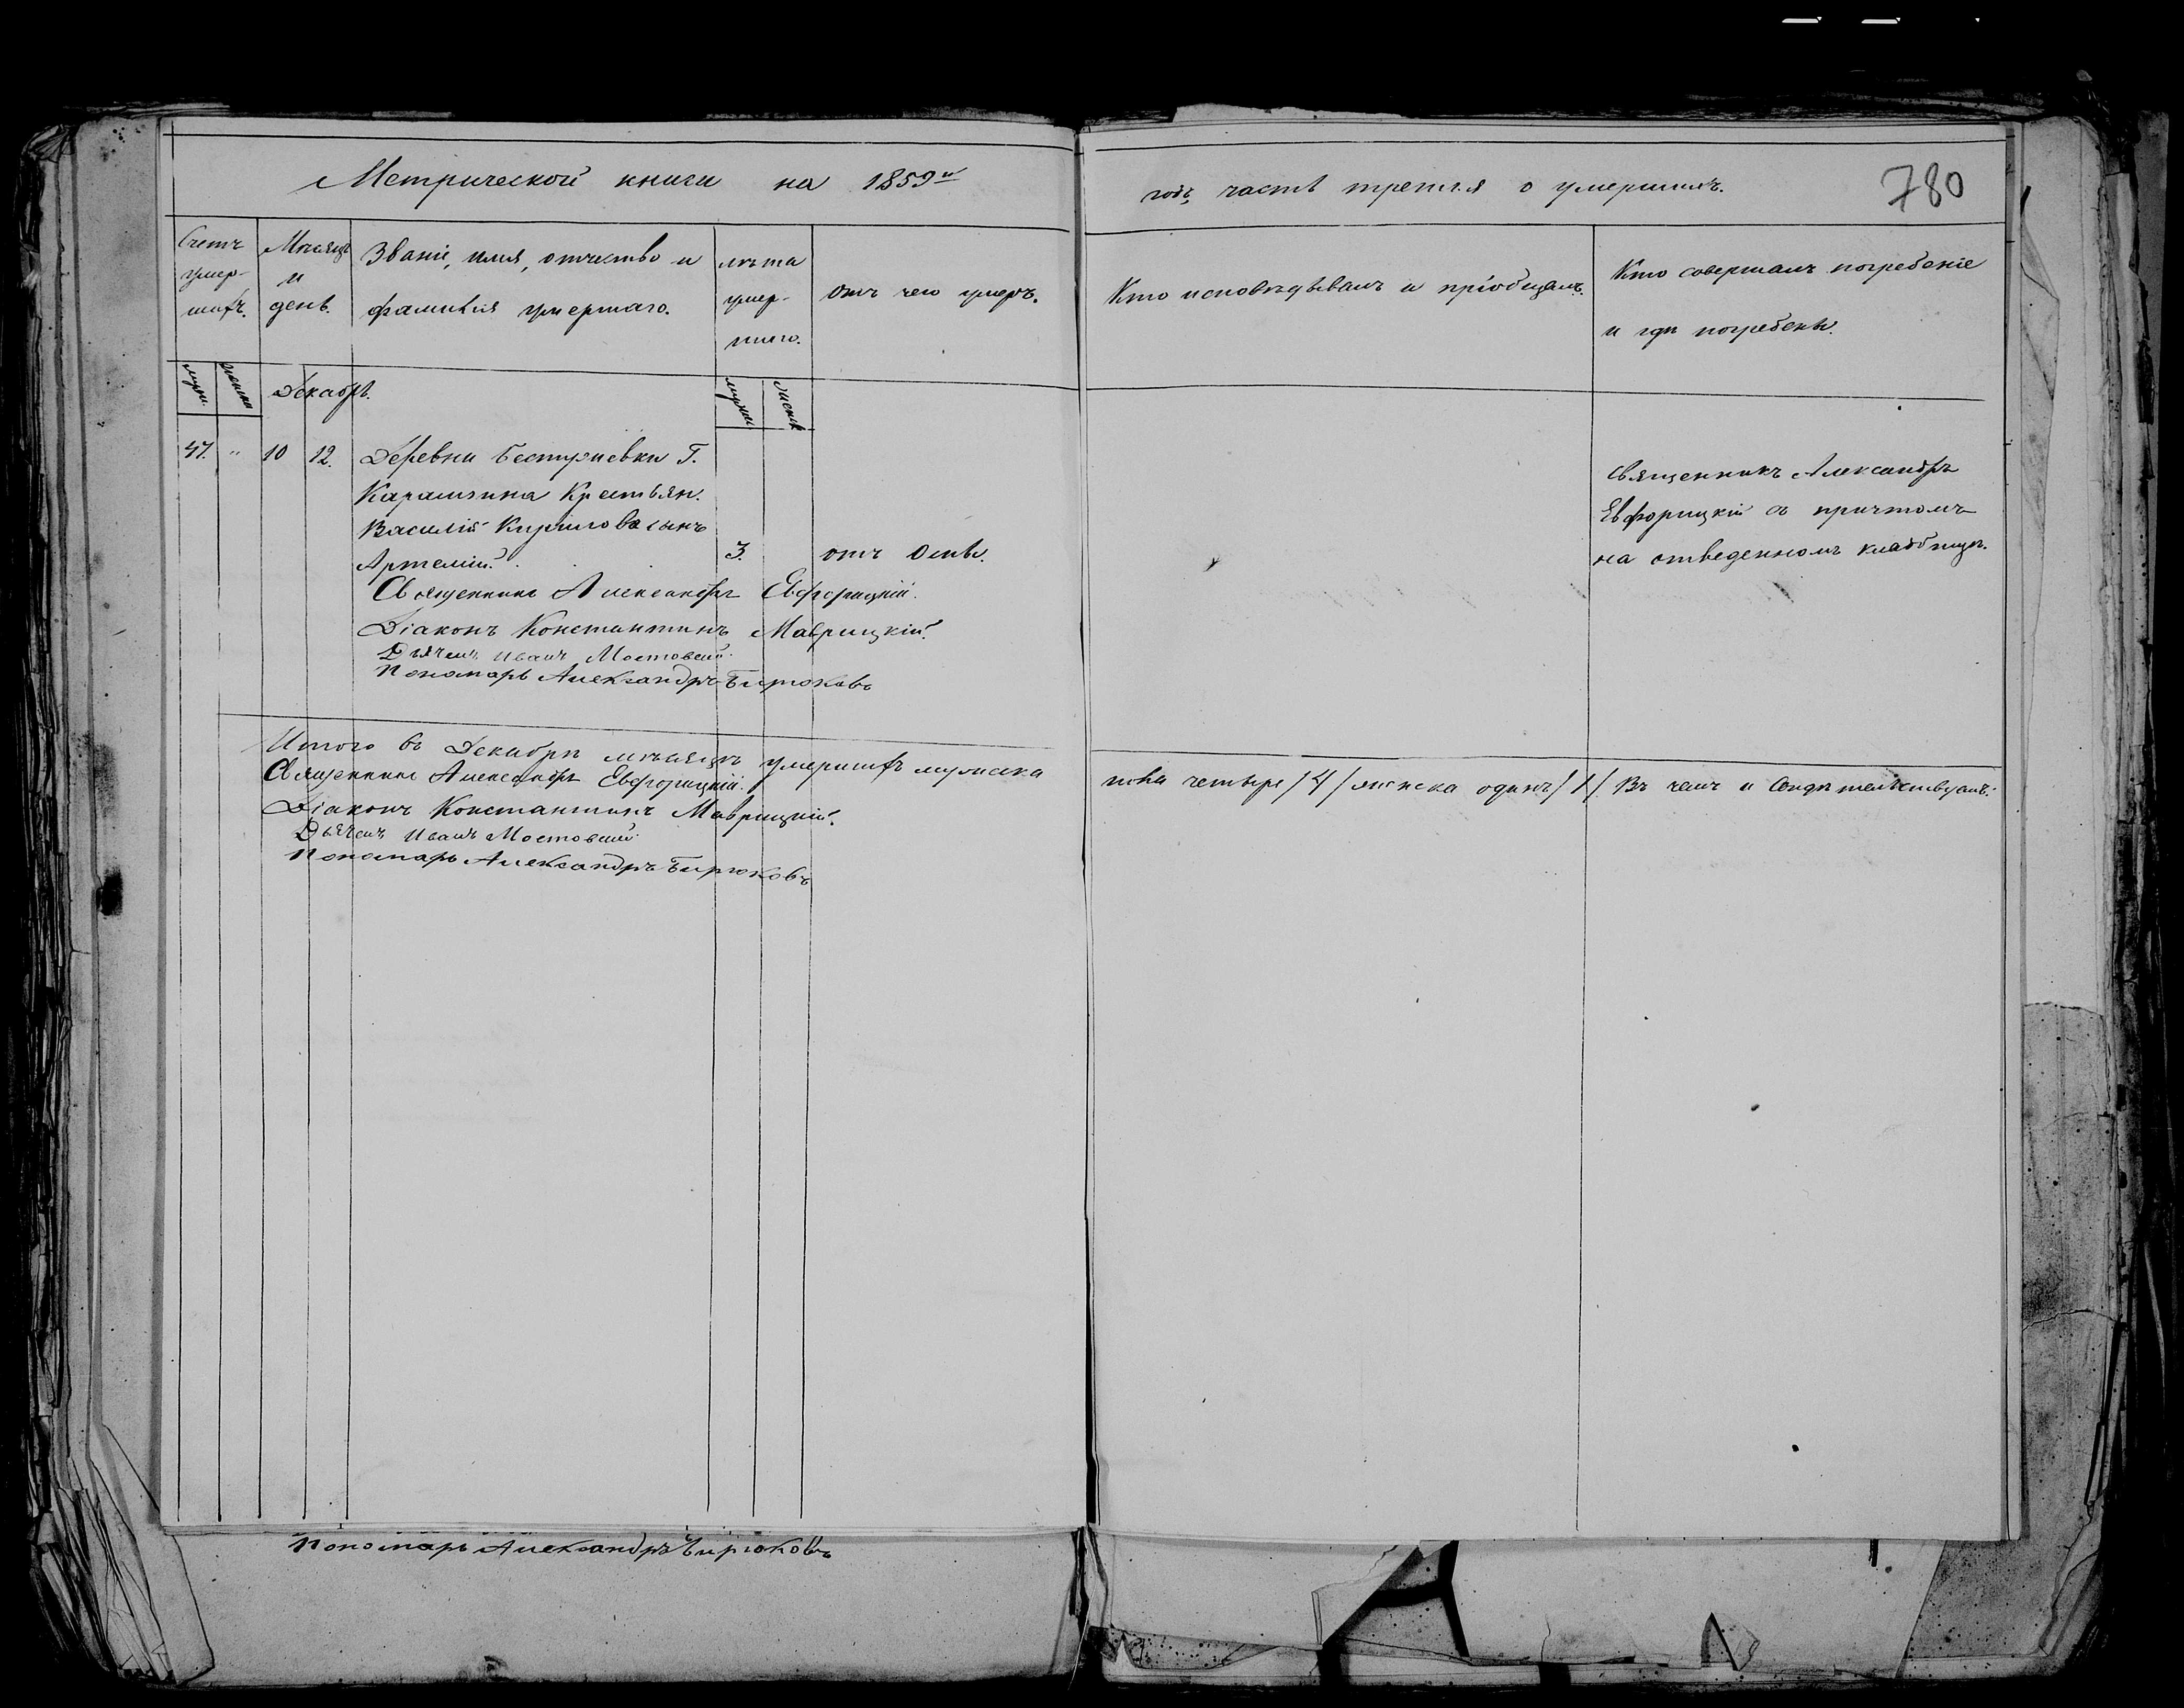 Метрической книги на 1859й
годъ, часть третья о умершихъ.
780
Счетъ
умер-
шихъ.
Мѣсяцъ
и
день.
Званіе, имя, отчество и
фамилія умершаго.
лѣта
умер-
шаго.
отъ чего умеръ.
Кто исповѣдывалъ и пріобщалъ.
Кто совершалъ погребеніе
и гдѣ погребенъ.
Декабрь.
47. " 10 12. Деревни Бестужевки Г.
Карамзина Крестьян.
Василій Кирилова сынъ
Артемій. 3. отъ Оспы.
Священникъ Александръ
Евфорицкій съ причтомъ
на отведенномъ кладбищѣ.
Священникъ Александръ Евфорицкій.
Діаконъ Константинъ Маврицкій.
Дьячекъ Иванъ Мостовскій.
Пономарь Александръ Бирюковъ
Итого въ Декабрѣ мѣсяцѣ умершихъ мужска
пола четыре /4/ женска одинъ /1/. Въ чемъ и свидѣтельствуемъ:
Священникъ Александръ Евфорицкій.
Діаконъ Константинъ Маврицкій.
Дьячекъ Иванъ Мостовскій.
Пономарь Александръ Бирюковъ
Пономарь Александръ Бирюковъ